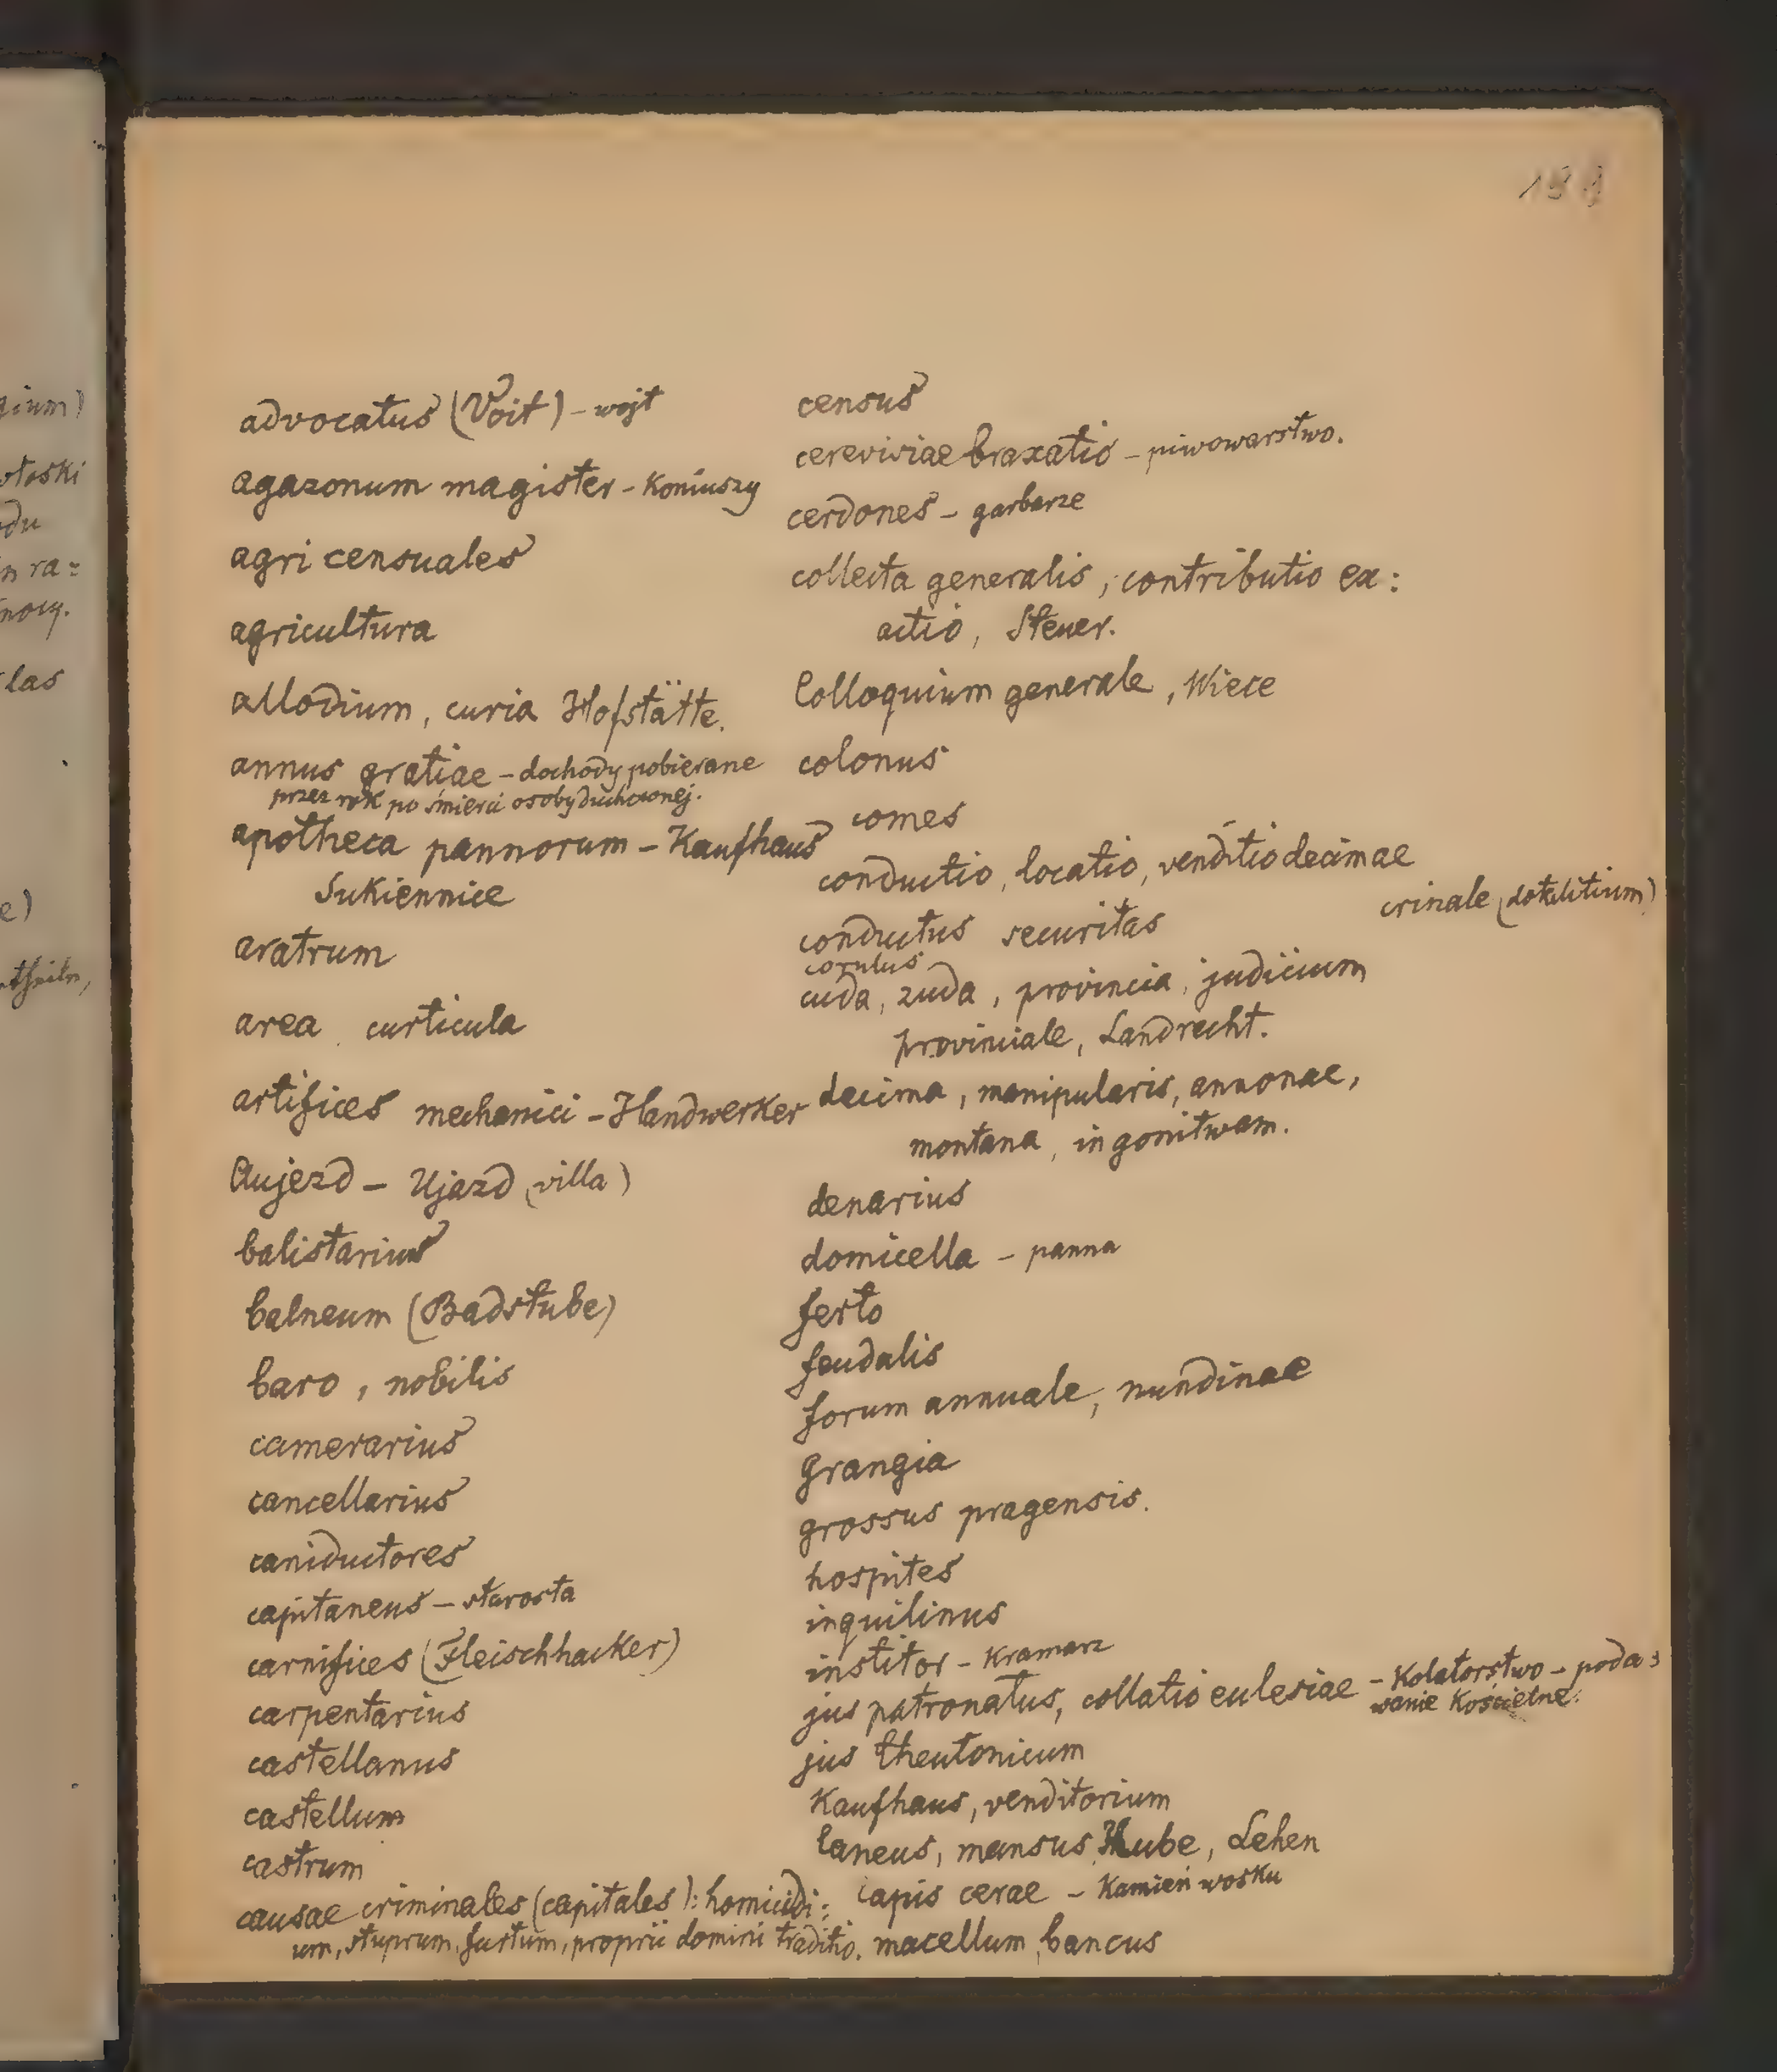 advocatus (Voit) – wojt
agazonum magister – Koniuszy
agri censuales
agricultura
allodium, curia Hofstätte.
annus gratiae – dochody pobierane
przez rok po śmierci osoby duchownej.
apotheca pannorum – Kaufhaus
Sukiennice
aratrum
area curticula
artifices mechanici – Handwerker
Aujezd – Ujazd (villa)
balistarius
balneum (Badstube)
baro, nobilis
camerarius
cancellarius
caniductores
capitaneus – starosta
carnifices (Fleischhacker)
carpentarius
castellanus
castellum
castrum
causae criminales (capitales): homicidi:
um, stuprum, furtum, proprii domini traditio.
census
cerevisiae braxatio – piwowarstwo.
cerdones – garbarze
collecta generalis, contributio ex:
actio, Steuer.
Colloquium generale, Wiece
colonus
comes
conductio, locatio, venditio decimae
crinale (dotalitium)
conductus securitas
corulus
cuda, zuda, provincia, judicium
provinciale, Landrecht.
decima, manipularis, annonae,
montana, in gonitwam.
denarius
domicella – panna
ferto
feudalis
forum annuale, nundinae
grangia
grossus pragensis.
hospites
inquilinus
institor – Kramarz
jus patronatus, collatio eclesiae – Kolatorstwo – poda:
wanie Kościelne.
jus theutonicum
Kaufhaus, venditorium
laneus, mansus, Hube, Lehen
lapis cerae – Kamień wosku
macellum, bancus